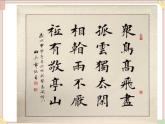 衆鳥高飛
盡孤雲獨
去閑相看
兩不厭只
有敬亭山